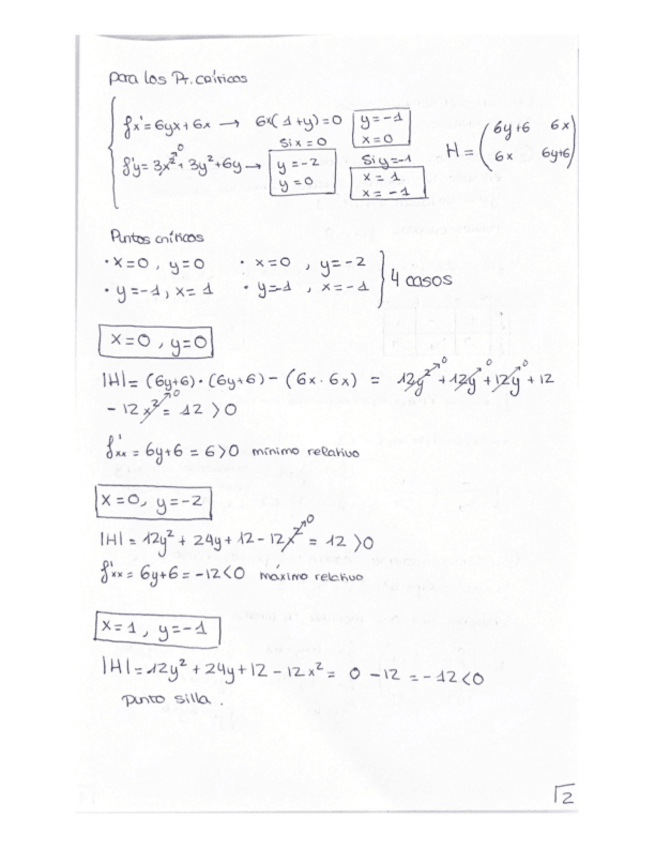 para los Pt. críticos
fx' = 6yx + 6x → 6x(1+y) = 0 y = -1 x = 0
Si x = 0
f'y = 3x² ↗0 + 3y² + 6y → y = -2 y = 0
Si y = -1
x = 1
x = -1
H = (6y+6 6x
6x 6y+6)
Puntos críticos
· x = 0, y = 0 · x = 0, y = -2
· y = -1, x = 1 · y = -1, x = -1 } 4 casos
x = 0, y = 0
|H| = (6y+6) · (6y+6) - (6x · 6x) = 12y² ↗0 + 12y ↗0 + 12y ↗0 + 12
- 12x² ↗0 = 12 > 0
f'xx = 6y+6 = 6 > 0 mínimo relativo
x = 0, y = -2
|H| = 12y² + 24y + 12 - 12x² ↗0 = 12 > 0
f'xx = 6y+6 = -12 < 0 máximo relativo
x = 1, y = -1
|H| = 12y² + 24y + 12 - 12x² = 0 - 12 = -12 < 0
punto silla.
2